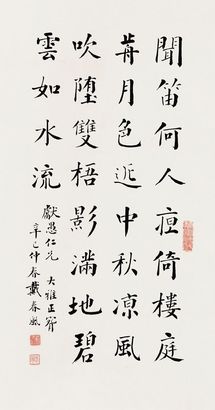 聞笛何人倚樓庭
前月色近中秋凉風
吹墮雙梧影滿地碧
雲如水流
仁兄 大雅正
辛巳仲春戴春風